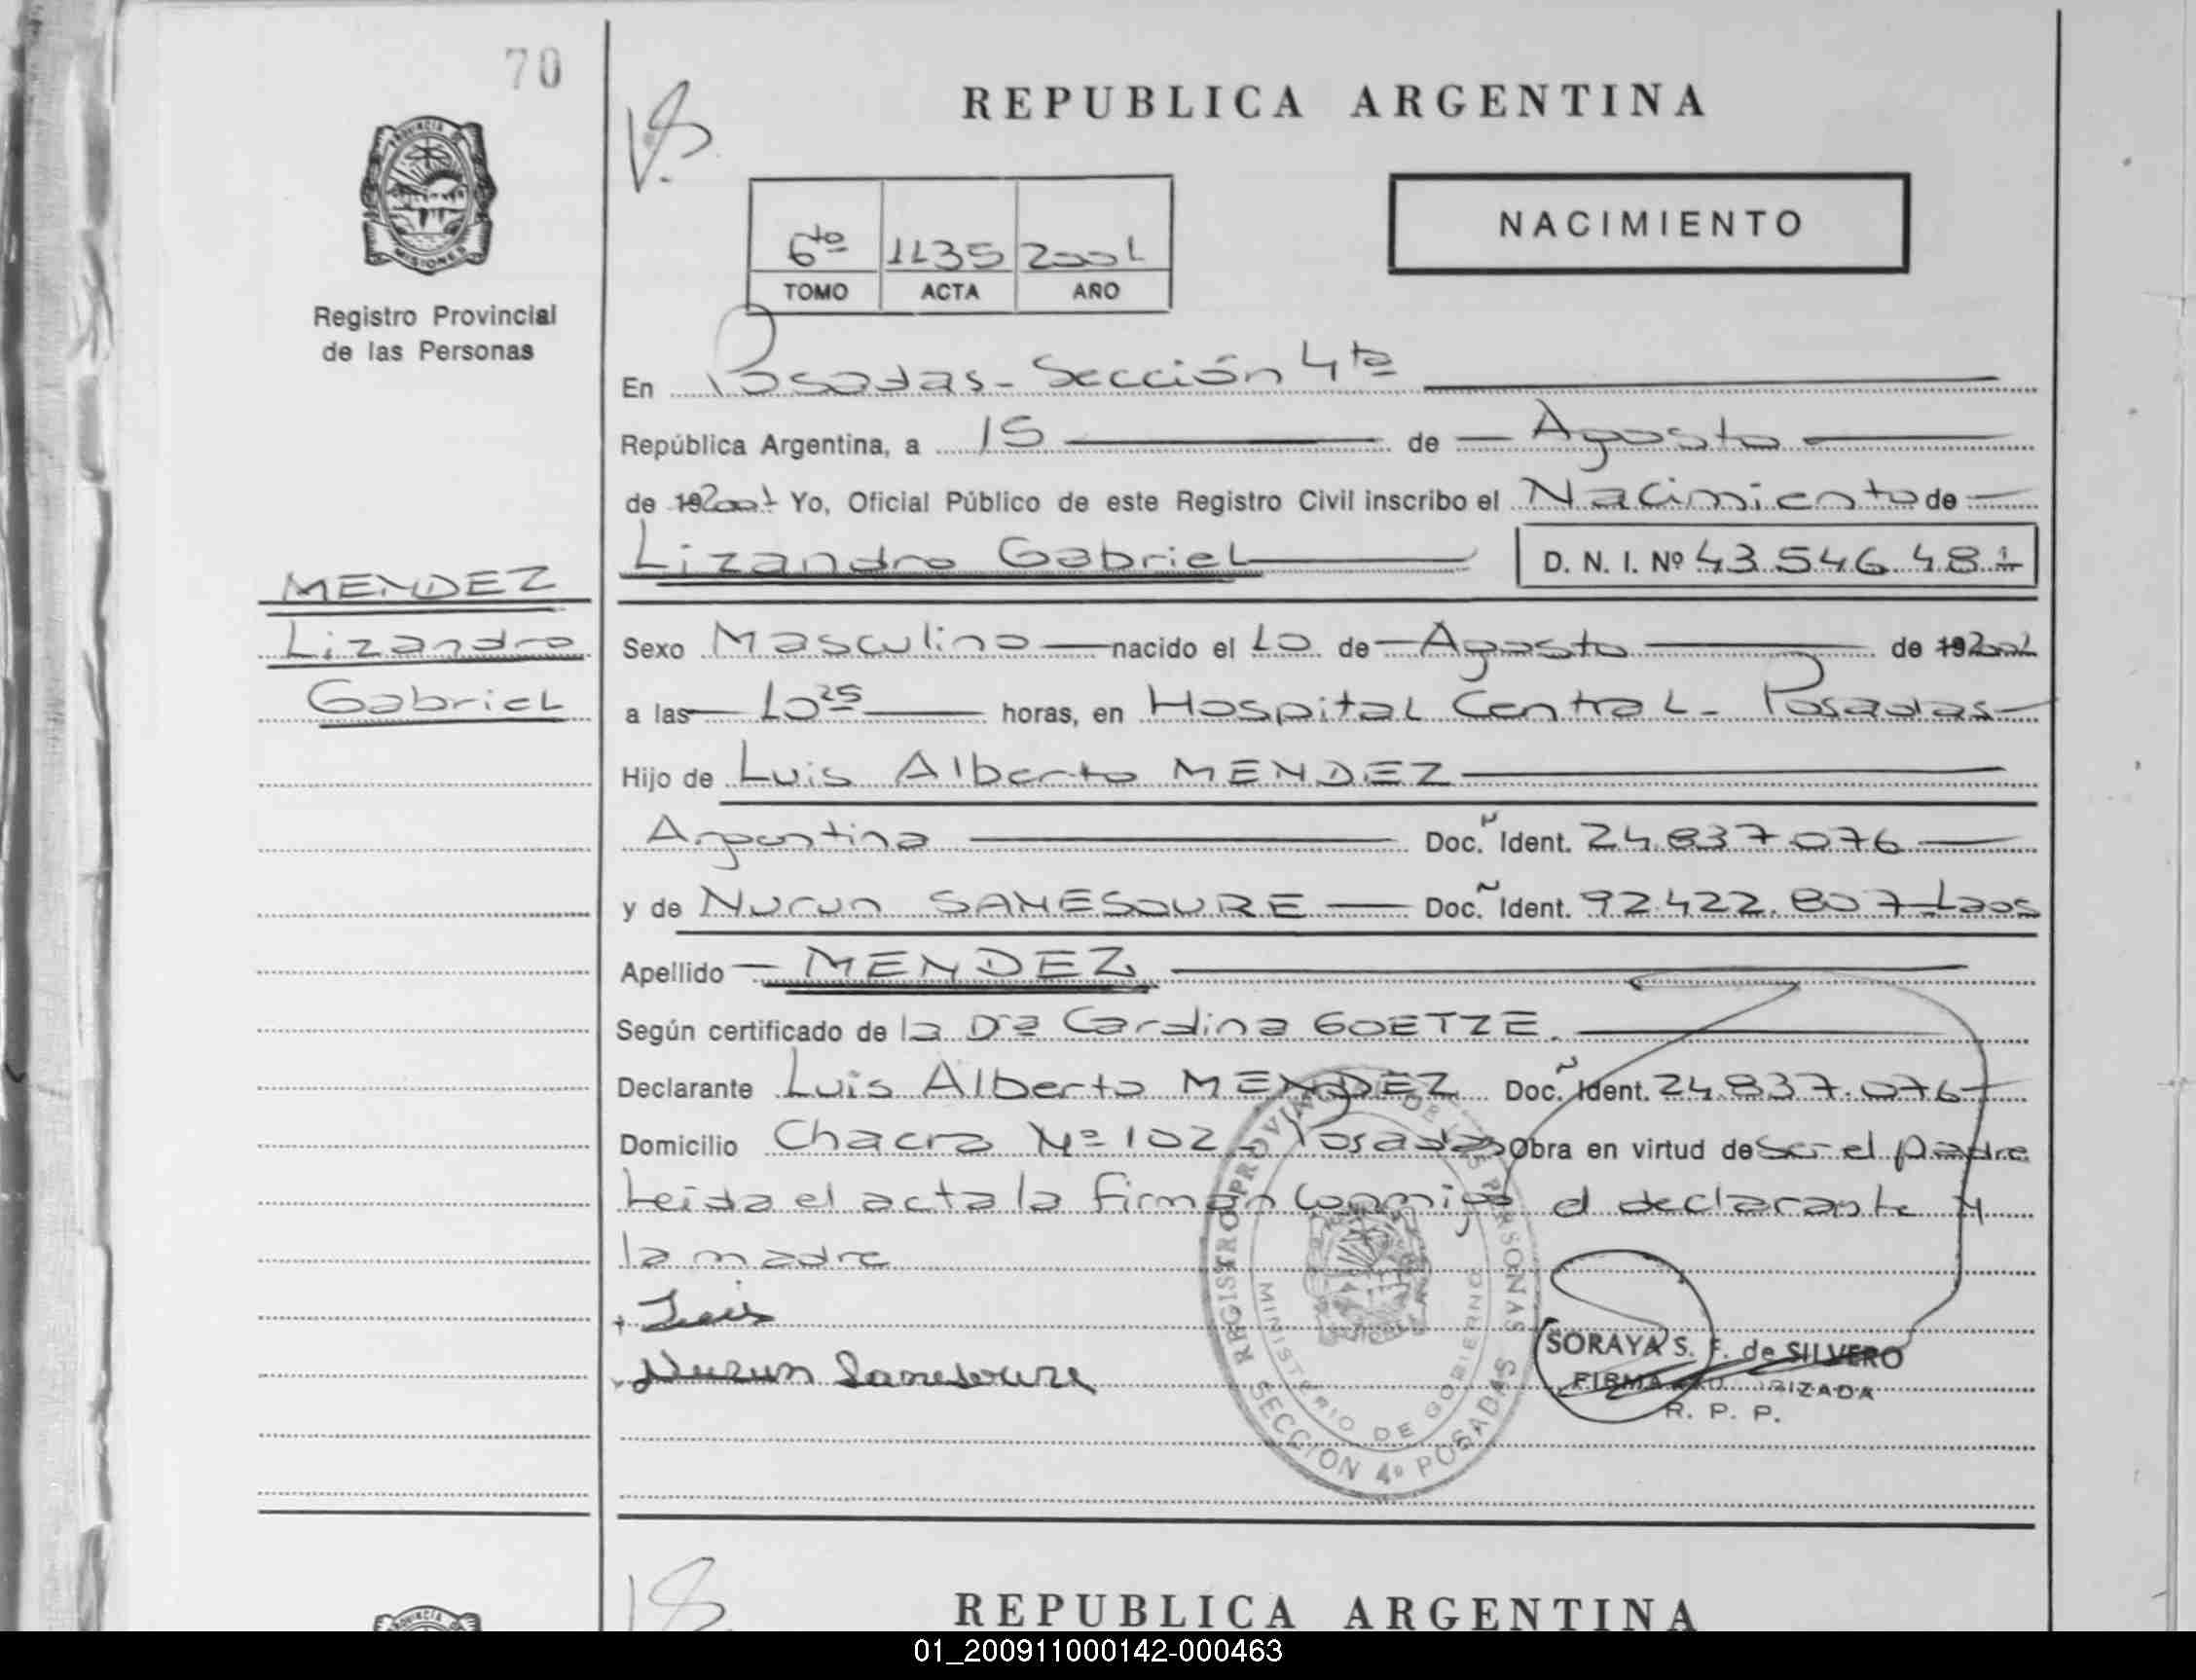 70
REPUBLICA ARGENTINA
PROVINCIA DE
MISIONES
Registro Provincial
de las Personas
NACIMIENTO
6to 1135 2001
TOMO ACTA AÑO
En Posadas - Sección 4ta
República Argentina, a 15 de Agosto
de 192001 Yo, Oficial Público de este Registro Civil inscribo el Nacimiento de
Lizandro Gabriel D. N. I. Nº 43.546.481
MENDEZ
Lizandro
Gabriel
Sexo Masculino nacido el 10 de Agosto de 192001
a las 10 25 horas, en Hospital Central - Posadas
Hijo de Luis Alberto MENDEZ
Argentina Doc. Ñ Ident. 24.837.076
y de Nurun SANESOURE Doc. Ident. 92.422.807 Laos
Apellido MENDEZ
Según certificado de la Dra Carolina GOETZE.
Declarante Luis Alberto MENDEZ Doc. Ident. 24.837.076
Domicilio Chacra Nº 102 - Posadas Obra en virtud de ser el padre
Leida el acta la firman conmigo el declarante y
la madre
Luis
Nurun Sanesoure
REGISTRO PROVINCIAL DE LAS PERSONAS
MINISTERIO DE GOBIERNO
SECCION 4º POSADAS
SORAYA S. F. de SILVERO
FIRMA AUTORIZADA
R. P. P.
REPUBLICA ARGENTINA
01_200911000142-000463